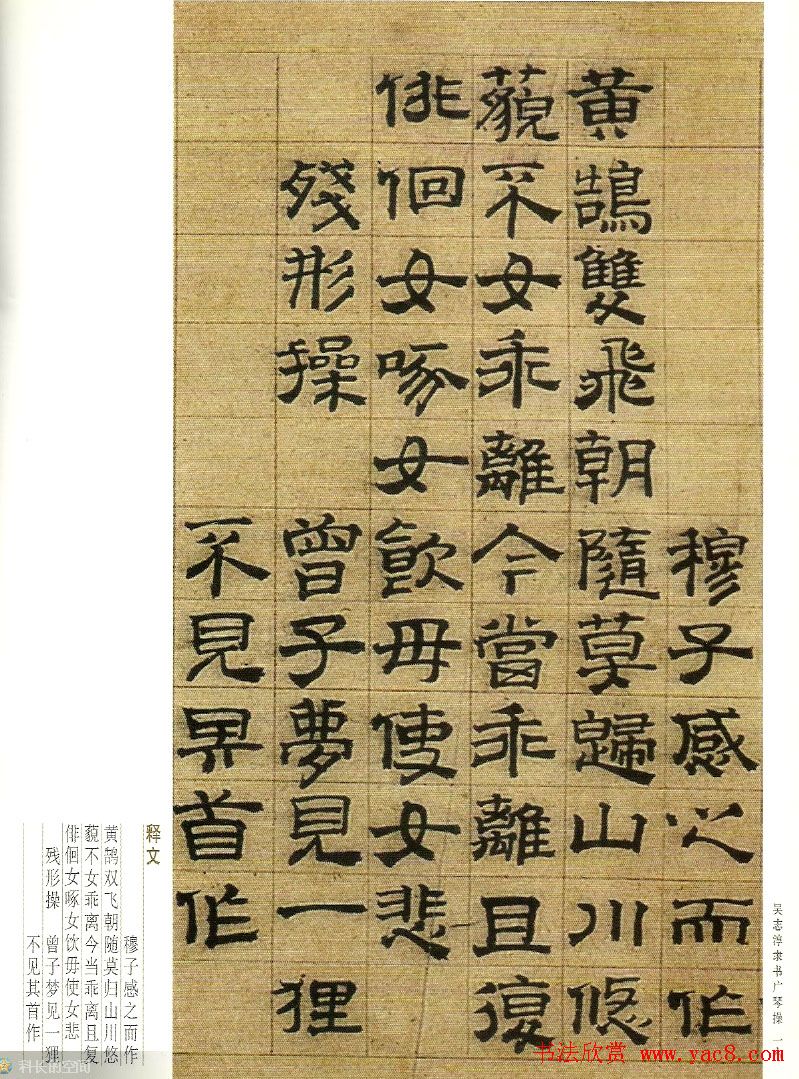 穆子感之而作
黄鵠雙飛朝隨莫歸山川悠
藐不女乖離今當乖離且復
俳佪女啄女飲毋使女悲
殘形操 曾子夢見一狸
不見其首作
吴志淳隶书广琴操 一
释文
穆子感之而作
黄鹄双飞朝随莫归山川悠
藐不女乖离今当乖离且复
俳佪女啄女饮毋使女悲
残形操 曾子梦见一狸
不见其首作
书法欣赏 www.yac8.com
科长的空间